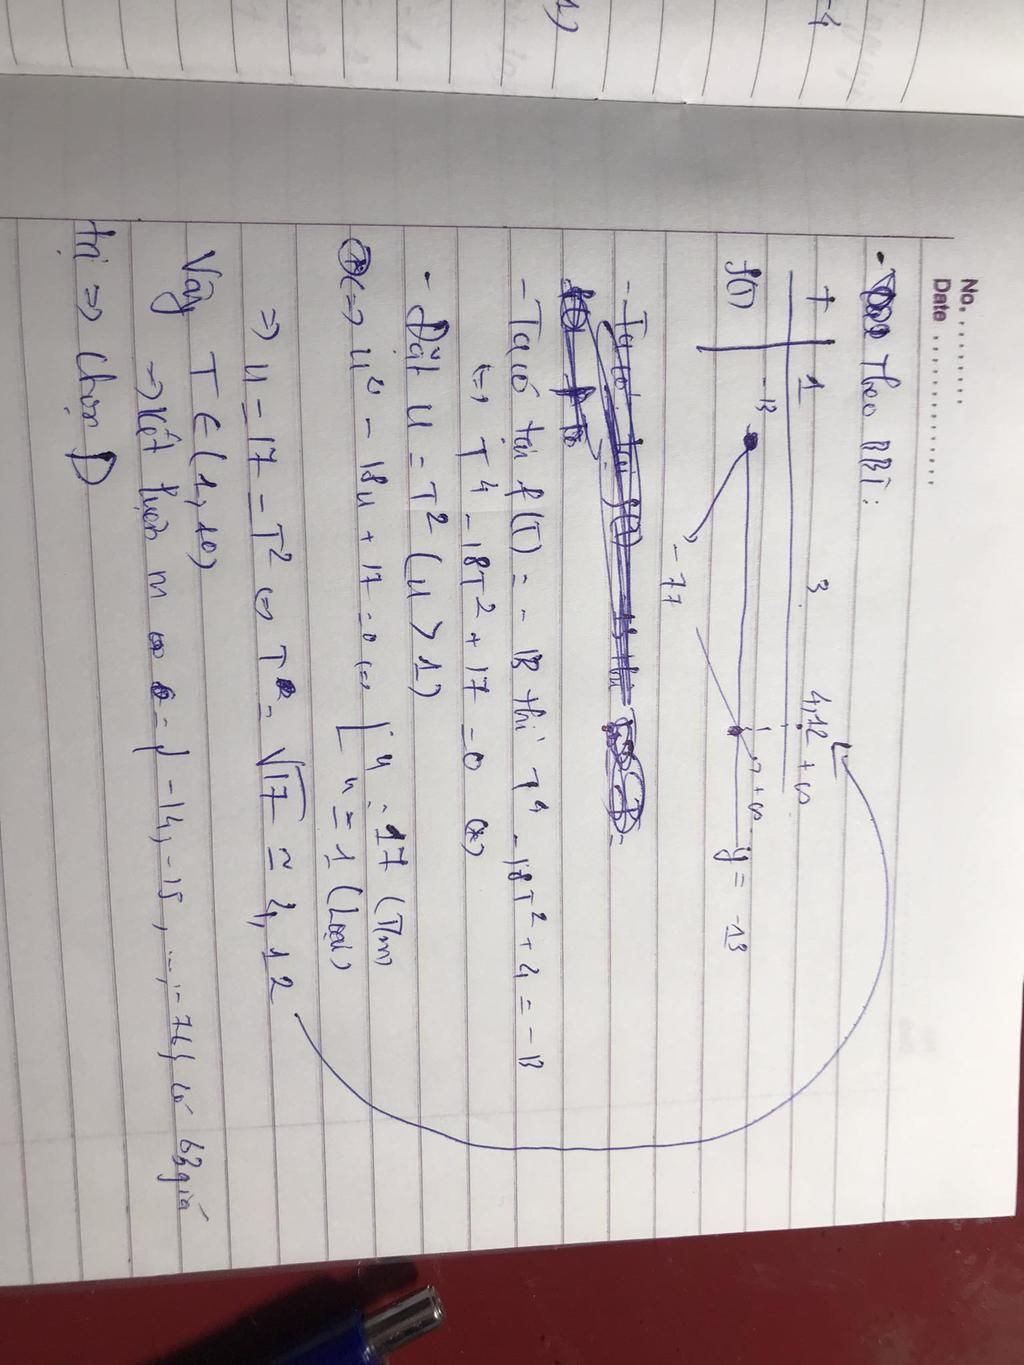 No. ..........
Date ..............
- Theo BBT:
T 1 3 4,12 +∞
f(T) -13 -77 +∞ y = -13
- Ta có tại f(T) = -13 thì T⁴ - 18T² + 4 = -13
<=> T⁴ - 18T² + 17 = 0 (*)
- Đặt u = T² (u > 1)
(*) <=> u² - 18u + 17 = 0 <=> [ u = 17 (T/m)
u = 1 (Loại)
=> u = 17 = T² <=> T = √17 ≃ 4,12
Vậy T ∈ (1, 10)
=> Kết luận m = { -14, -15, ..., -76 } có 63 giá
trị => Chọn D